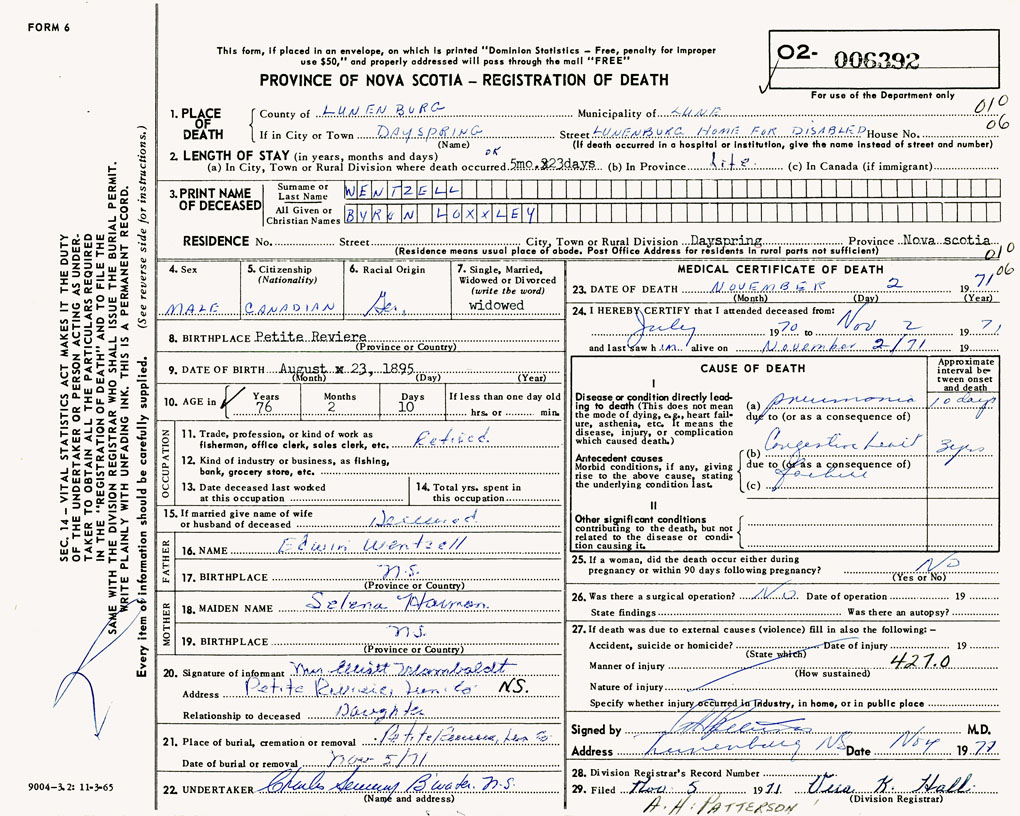 FORM 6
This form, if placed in an envelope, on which is printed "Dominion Statistics – Free, penalty for improper
use $50," and properly addressed will pass through the mail "FREE"
PROVINCE OF NOVA SCOTIA – REGISTRATION OF DEATH
02- 006392
For use of the Department only
1. PLACE OF DEATH
County of LUNENBURG Municipality of LUNE 010
If in City or Town DAYSPRING Street LUNENBURG HOME FOR DISABLED House No. 06
(Name) (If death occurred in a hospital or institution, give the name instead of street and number)
2. LENGTH OF STAY (in years, months and days) OK
(a) In City, Town or Rural Division where death occurred 5mo. 223days (b) In Province life. (c) In Canada (if immigrant)
3. PRINT NAME OF DECEASED
Surname or Last Name WENTZELL
All Given or Christian Names BYRON LOXXLEY
RESIDENCE No. Street City, Town or Rural Division Dayspring Province Nova scotia
(Residence means usual place of abode. Post Office Address for residents in rural parts not sufficient) 010
06
4. Sex MALE
5. Citizenship (Nationality) CANADIAN
6. Racial Origin Ger.
7. Single, Married, Widowed or Divorced (write the word) widowed
8. BIRTHPLACE Petite Reviere
(Province or Country)
9. DATE OF BIRTH August x 23, 1895
(Month) (Day) (Year)
10. AGE in Years 76 Months 2 Days 10 If less than one day old hrs. or min.
OCCUPATION
11. Trade, profession, or kind of work as fisherman, office clerk, sales clerk, etc. Retired.
12. Kind of industry or business, as fishing, bank, grocery store, etc.
13. Date deceased last worked at this occupation
14. Total yrs. spent in this occupation
15. If married give name of wife or husband of deceased Deceased
FATHER
16. NAME Edwin Wentzell
17. BIRTHPLACE N.S.
(Province or Country)
MOTHER
18. MAIDEN NAME Selena
19. BIRTHPLACE N.S.
(Province or Country)
20. Signature of informant Mrs Elliott
Address Petite Reviere, Lun. Co N.S.
Relationship to deceased Daughter
21. Place of burial, cremation or removal Petite Reviere, Lun Co
Date of burial or removal Nov 5/71
22. UNDERTAKER Charles B'water N.S.
(Name and address)
MEDICAL CERTIFICATE OF DEATH
23. DATE OF DEATH NOVEMBER 2 1971
(Month) (Day) (Year)
24. I HEREBY CERTIFY that I attended deceased from:
July 1970 to Nov 2 1971
and last saw him alive on November 2/71 19
CAUSE OF DEATH
Approximate interval between onset and death
I
Disease or condition directly leading to death (This does not mean the mode of dying, e.g., heart failure, asthenia, etc. It means the disease, injury, or complication which caused death.)
(a) pneumonia 10 days
due to (or as a consequence of)
Antecedent causes
Morbid conditions, if any, giving rise to the above cause, stating the underlying condition last.
(b) Congestive heart 3 yrs
due to (or as a consequence of)
failure
(c)
II
Other significant conditions
contributing to the death, but not related to the disease or condition causing it.
25. If a woman, did the death occur either during pregnancy or within 90 days following pregnancy? NO
(Yes or No)
26. Was there a surgical operation? No. Date of operation 19
State findings Was there an autopsy?
27. If death was due to external causes (violence) fill in also the following: –
Accident, suicide or homicide? Date of injury 19
(State which)
Manner of injury 427.0
(How sustained)
Nature of injury
Specify whether injury occurred in Industry, in home, or in public place
Signed by M.D.
Address Lunenburg NS Date Nov 1971
28. Division Registrar's Record Number
29. Filed Nov. 5 1971 Vera K. Hall
(Division Registrar)
A. H. PATTERSON
SEC. 14 – VITAL STATISTICS ACT MAKES IT THE DUTY
OF THE UNDERTAKER OR PERSON ACTING AS UNDER-
TAKER TO OBTAIN ALL THE PARTICULARS REQUIRED
IN THE "REGISTRATION OF DEATH" AND TO FILE THE
SAME WITH THE DIVISION REGISTRAR WHO SHALL ISSUE THE BURIAL PERMIT.
WRITE PLAINLY WITH UNFADING INK. THIS IS A PERMANENT RECORD.
Every item of information should be carefully supplied. (See reverse side for instructions.)
9004-3.2: 11-3-65